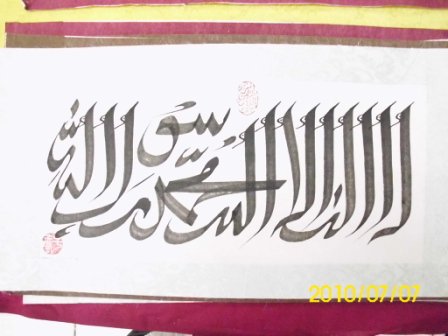 لا إله إلا الله محمد رسول الله
2010/07/07